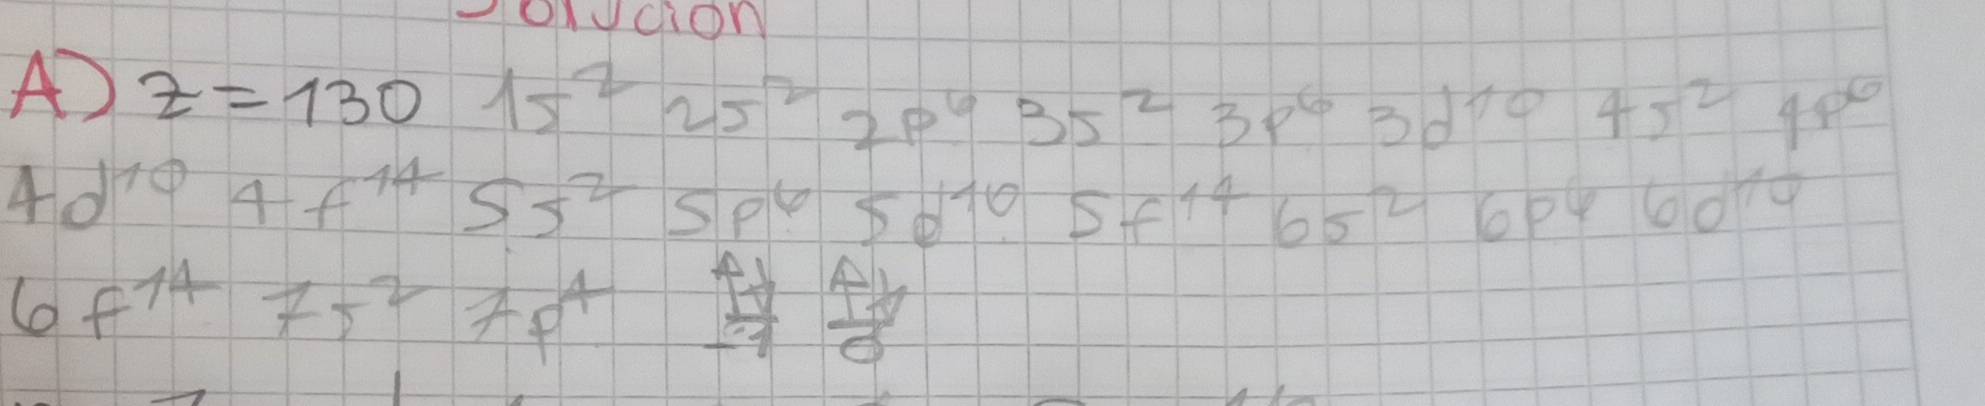 Solución
A) z = 130 1s² 2s² 2p⁶ 3s² 3p⁶ 3d¹⁰ 4s² 4p⁶
4d¹⁰ 4f¹⁴ 5s² 5p⁶ 5d¹⁰ 5f¹⁴ 6s² 6p⁶ 6d¹⁰
6f¹⁴ 7s² 7p⁴ ↑↓ ↑↓
-1 0